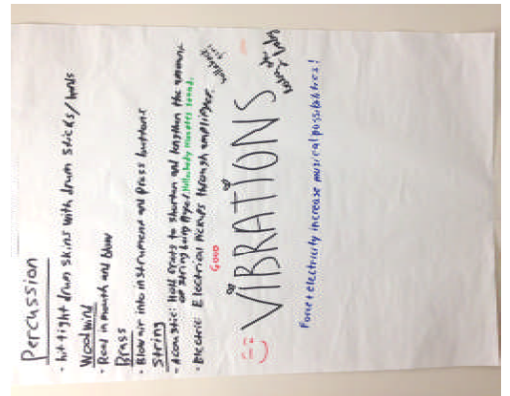 Percussion
- Hit tight drum skins with drum sticks/hands
Woodwind
- Reed in mouth and blow
Brass
- Blow air into instrument and press buttons
String
- Acoustic: Hold frets to shorten and lengthen the amount
of string being played. Hollow body vibrates sound.
- Electric: Electrical pickups through amplifier.
GOOD
VIBRATIONS
Force + electricity increase musical possibilities!